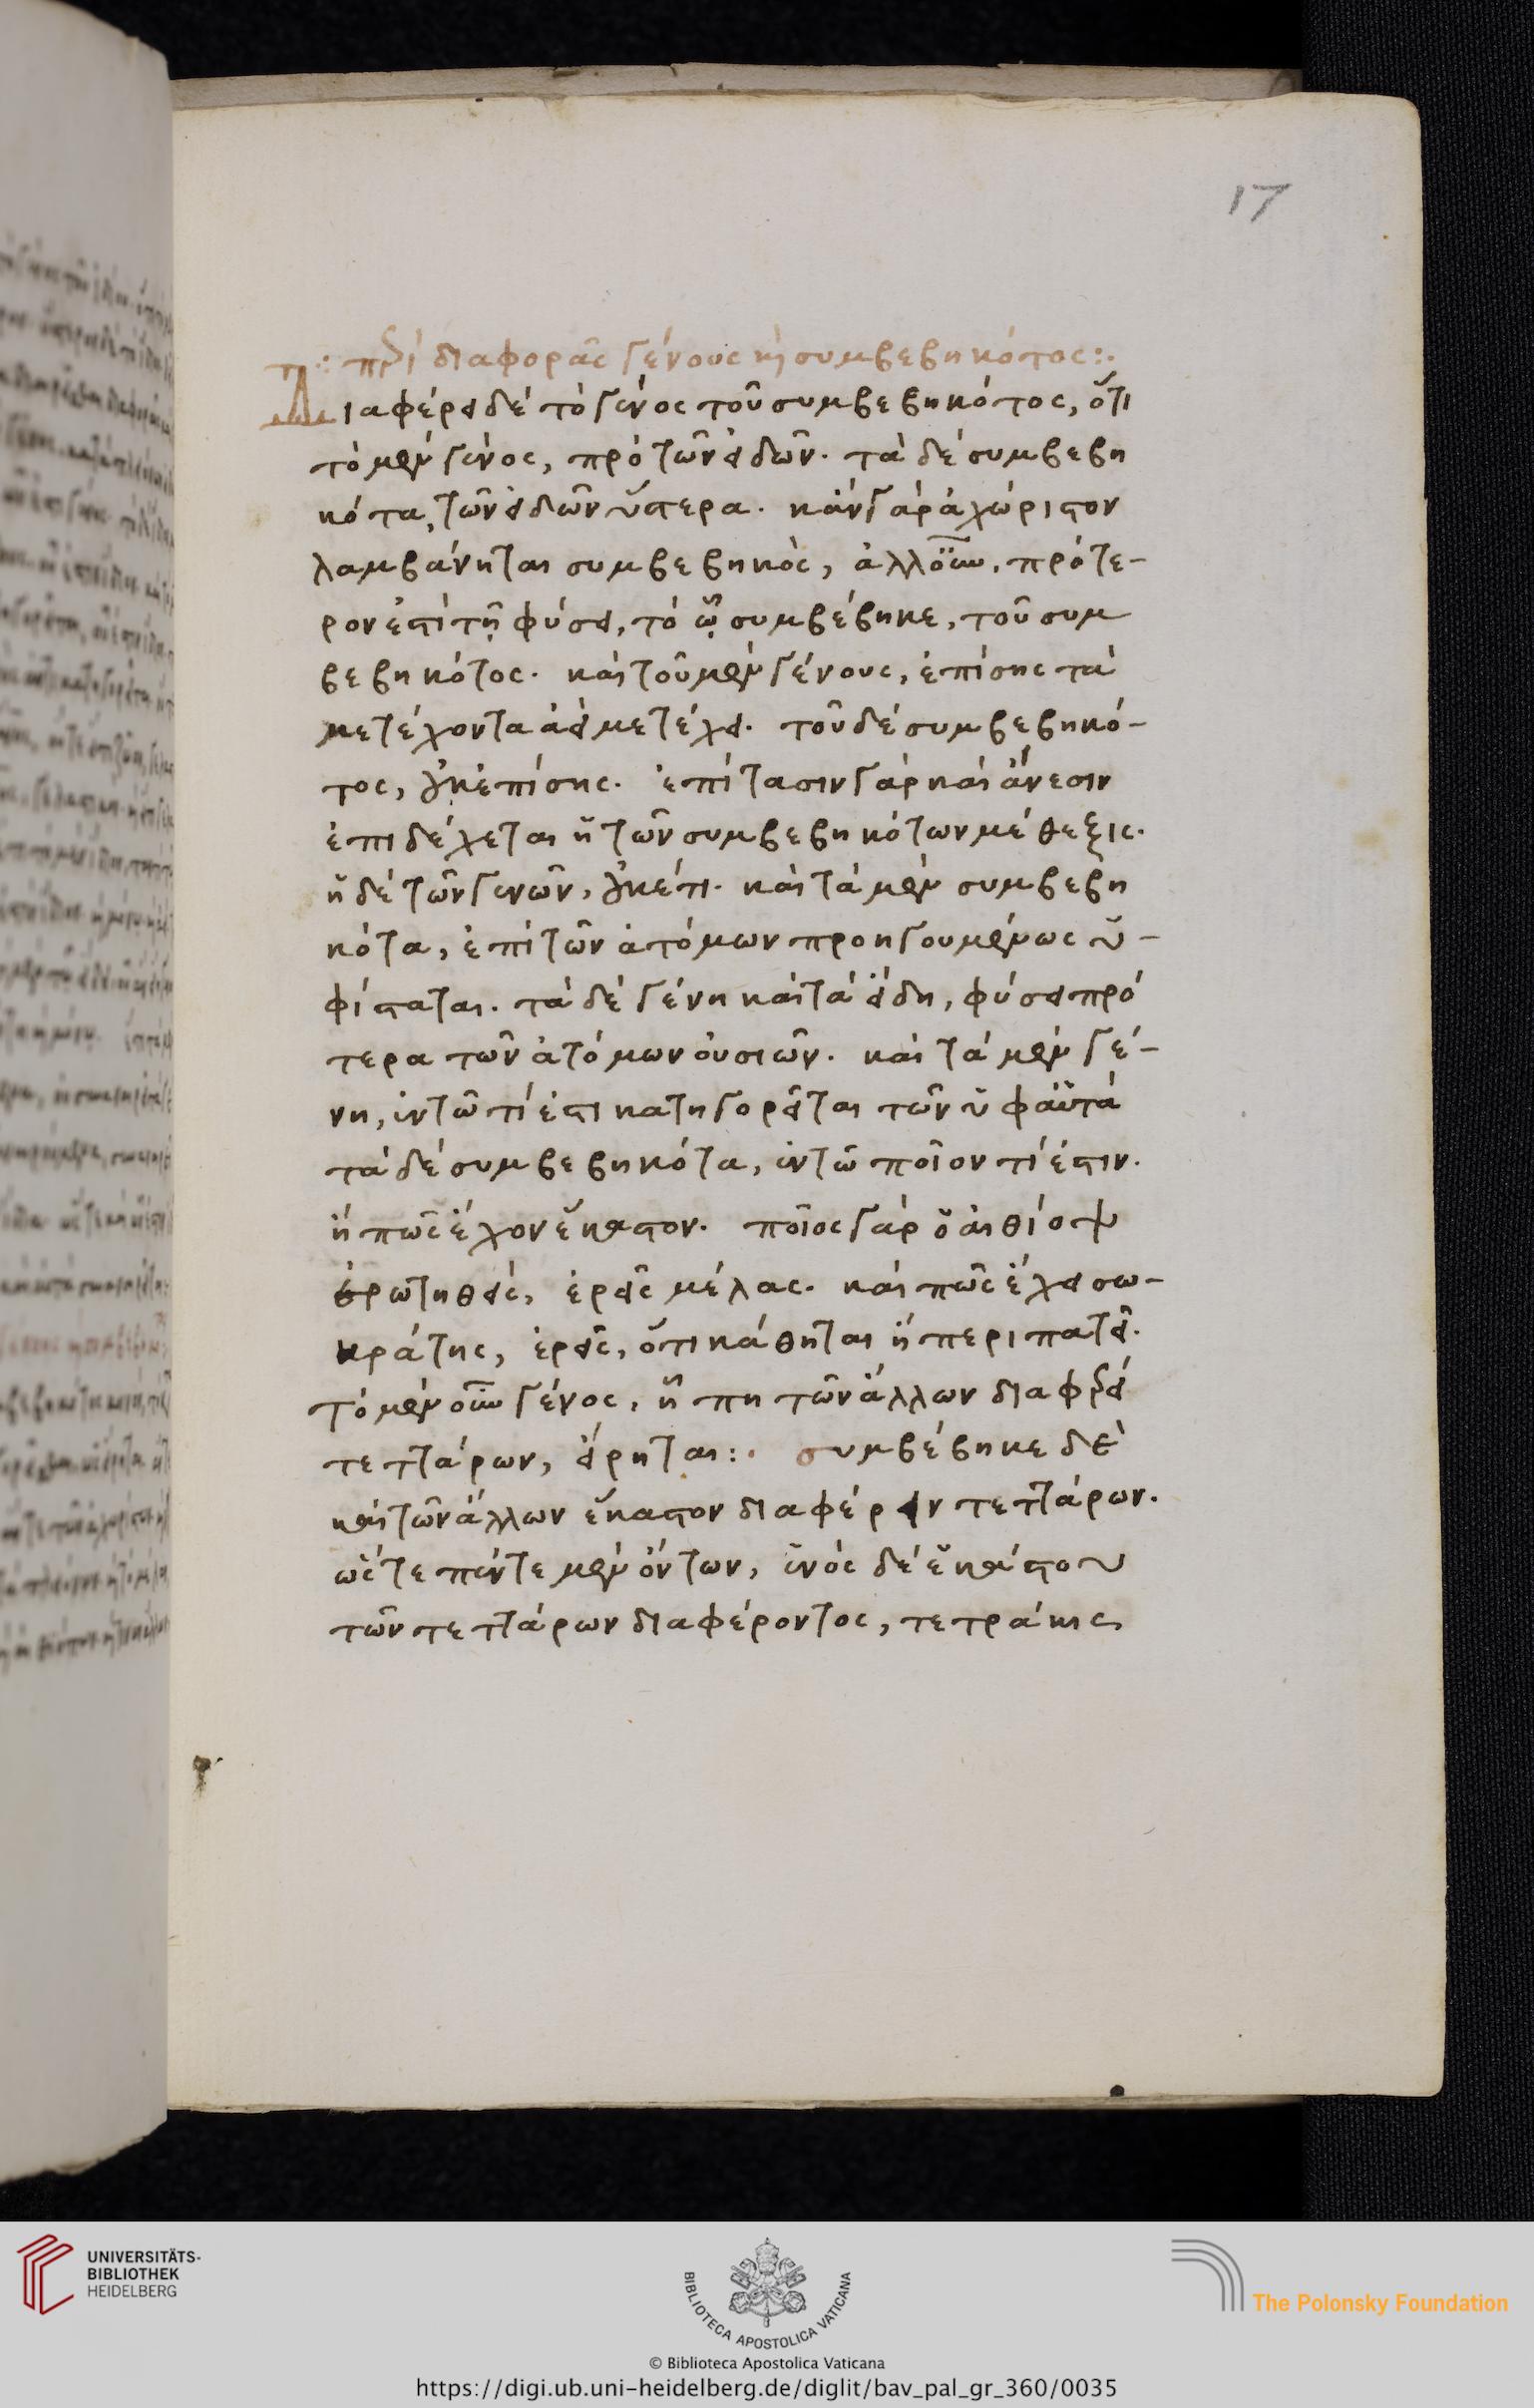 17
περὶ διαφορᾶς γένους κὶ συμβεβηκότος:·
Διαφέρει δὲ τὸ γένος τοῦ συμβεβηκότος, ὅτι
τὸ μὲν γένος, πρὸ τῶν εἰδῶν· τὰ δὲ συμβεβη
κότα, τῶν εἰδῶν ὕστερα· κἂν γὰρ ἀχώριστον
λαμβάνηται συμβεβηκὸς, ἀλλ' οὖν, πρότε-
ρον ἐστὶ τῇ φύσει, τὸ ᾧ συμβέβηκε, τοῦ συμ
βεβηκότος· καὶ τοῦ μὲν γένους, ἐπίσης τὰ
μετέχοντα ἀεὶ μετέχει· τοῦ δὲ συμβεβηκό-
τος, οὐκ ἐπίσης· ἐπίτασιν γὰρ καὶ ἄνεσιν
ἐπιδέχεται ἡ τῶν συμβεβηκότων μέθεξις·
ἡ δὲ τῶν γενῶν, οὐκέτι· καὶ τὰ μὲν συμβεβη
κότα, ἐπὶ τῶν ἀτόμων προηγουμένως ὑ-
φίσταται· τὰ δὲ γένη καὶ τὰ εἴδη, φύσει πρό
τερα τῶν ἀτόμων οὐσιῶν· καὶ τὰ μὲν γέ-
νη, ἐν τῶ τί ἐστι κατηγορεῖται τῶν ὑφ' αὑτά
τὰ δὲ συμβεβηκότα, ἐν τῶ ποῖον τί ἐστιν·
ἢ πῶς ἔχον ἕκαστον· ποῖος γὰρ ὁ αἰθίοψ
ἐρωτηθεὶς, ἐρεῖς μέλας· καὶ πῶς ἔχει σω-
κράτης, ἐρεῖς, ὅτι κάθηται ἢ περιπατεῖ·
τὸ μὲν οὖν γένος, ᾗ πη τῶν ἄλλων διαφέρει
τεττάρων, εἴρηται:· συμβέβηκε δὲ
καὶ τῶν ἄλλων ἕκαστον διαφέρειν τεττάρων·
ὥστε πέντε μὲν ὄντων, ἑνὸς δὲ ἑκάστου
τῶν τεττάρων διαφέροντος, τετράκις
UNIVERSITÄTS-
BIBLIOTHEK
HEIDELBERG
BIBLIOTECA APOSTOLICA VATICANA
The Polonsky Foundation
© Biblioteca Apostolica Vaticana
https://digi.ub.uni-heidelberg.de/diglit/bav_pal_gr_360/0035